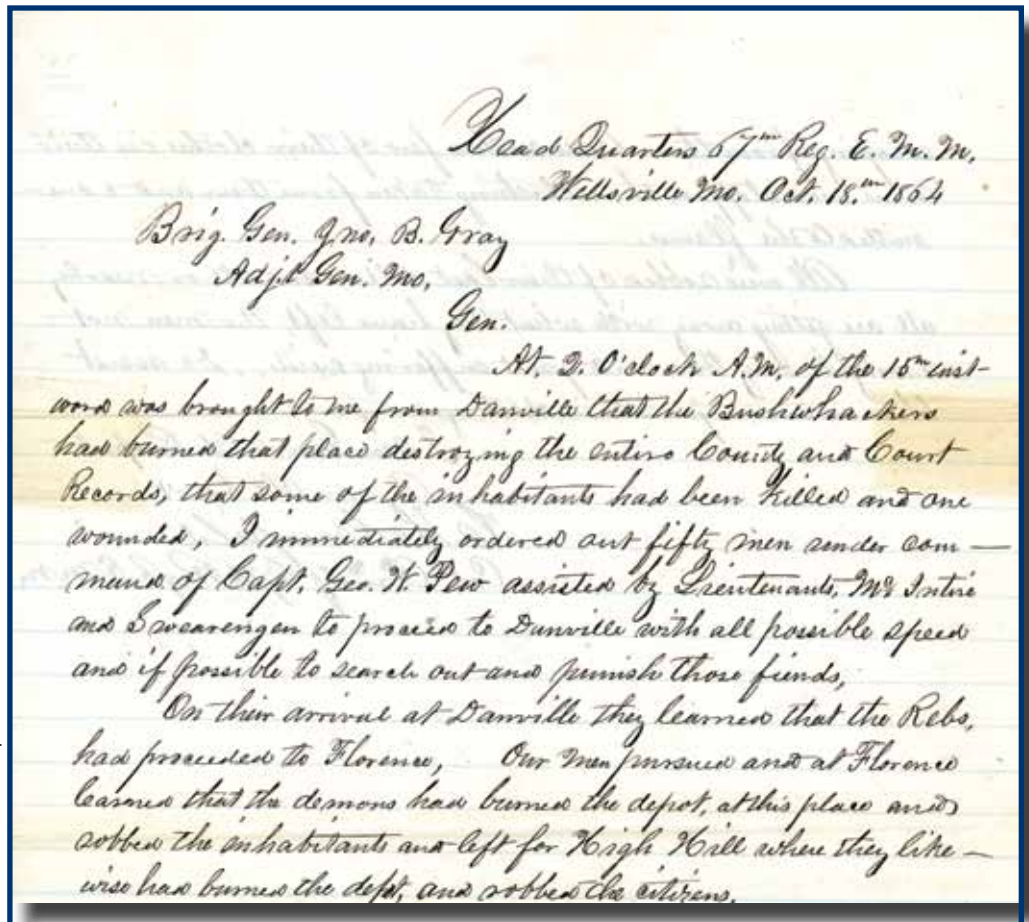 Head Quarters 67th Reg. E. M. M.
Wellsville Mo. Oct. 18.th 1864
Brig. Gen. Jno. B. Gray
Adj.t Gen. Mo.
Gen.
At. 2. O'clock A.M. of the 15th inst-
word was brought to me from Danville that the Bushwhackers
had burned that place destroying the entire County and Court
Records, that some of the inhabitants had been killed and one
wounded, I immediately ordered out fifty men under com—
mand of Capt. Geo. W. Pew assisted by Lieutenants, Mc Intire
and Swearengen to proceed to Danville with all possible speed
and if possible to search out and punish those fiends,
On their arrival at Danville they learned that the Rebs,
had proceeded to Florence, Our men pursued and at Florence
learned that the demons had burned the depot, at this place and
robbed the inhabitants and left for High Hill where they like—
wise had burned the depot, and robbed the citizens.